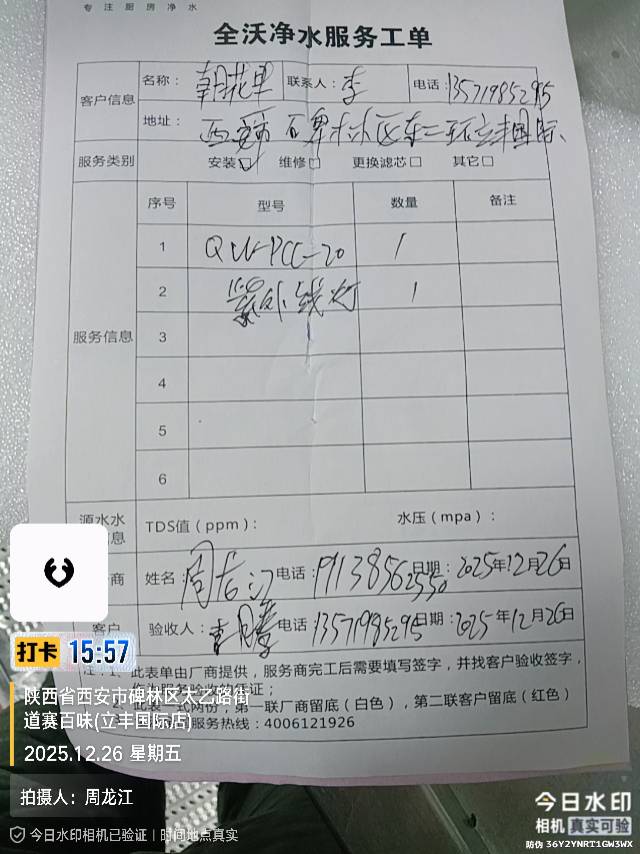 专注厨房净水
全沃净水服务工单
客户信息 名称： 朝花里 联系人： 李 电话： 13571985295
地址： 西安市 碑林区东二环立丰国际
服务类别 安装☑ 维修□ 更换滤芯□ 其它□
服务信息 序号 型号 数量 备注
1 QW-PCC-20 1
2 紫外线灯 1
3
4
5
6
源水水 TDS值（ppm）： 水压（mpa）：
商 姓名： 周龙江 电话： 191138562550 日期： 2025年12月26日
客户 验收人： 电话 13571985295 日期： 2025年12月26日
注：1、此表单由厂商提供，服务商完工后需要填写签字，并找客户验收签字，
作为服务验收的凭证；
2、此表一式两份，第一联厂商留底（白色），第二联客户留底（红色）
服务热线：4006121926
打卡 15:57
陕西省西安市碑林区太乙路街
道赛百味(立丰国际店)
2025.12.26 星期五
拍摄人：周龙江
今日水印相机已验证 | 时间地点真实
今日水印
相机 真实可验
防伪 36Y2YNRT1GW3WX